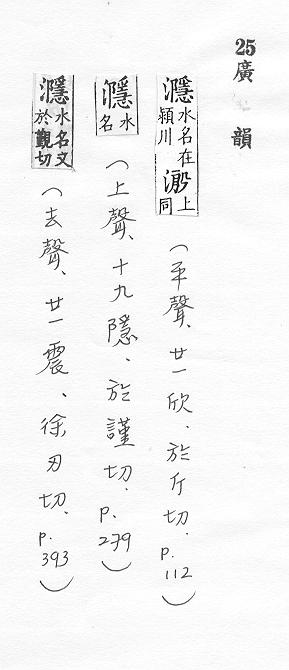 25廣韻
濦水名在潁川㶏上同(平聲、廿一欣、於斤切、p.112)
濦水名(上聲、十九隱、於謹切、p.279)
濦水名又於靳切(去聲、廿一震、徐刃切、p.393)